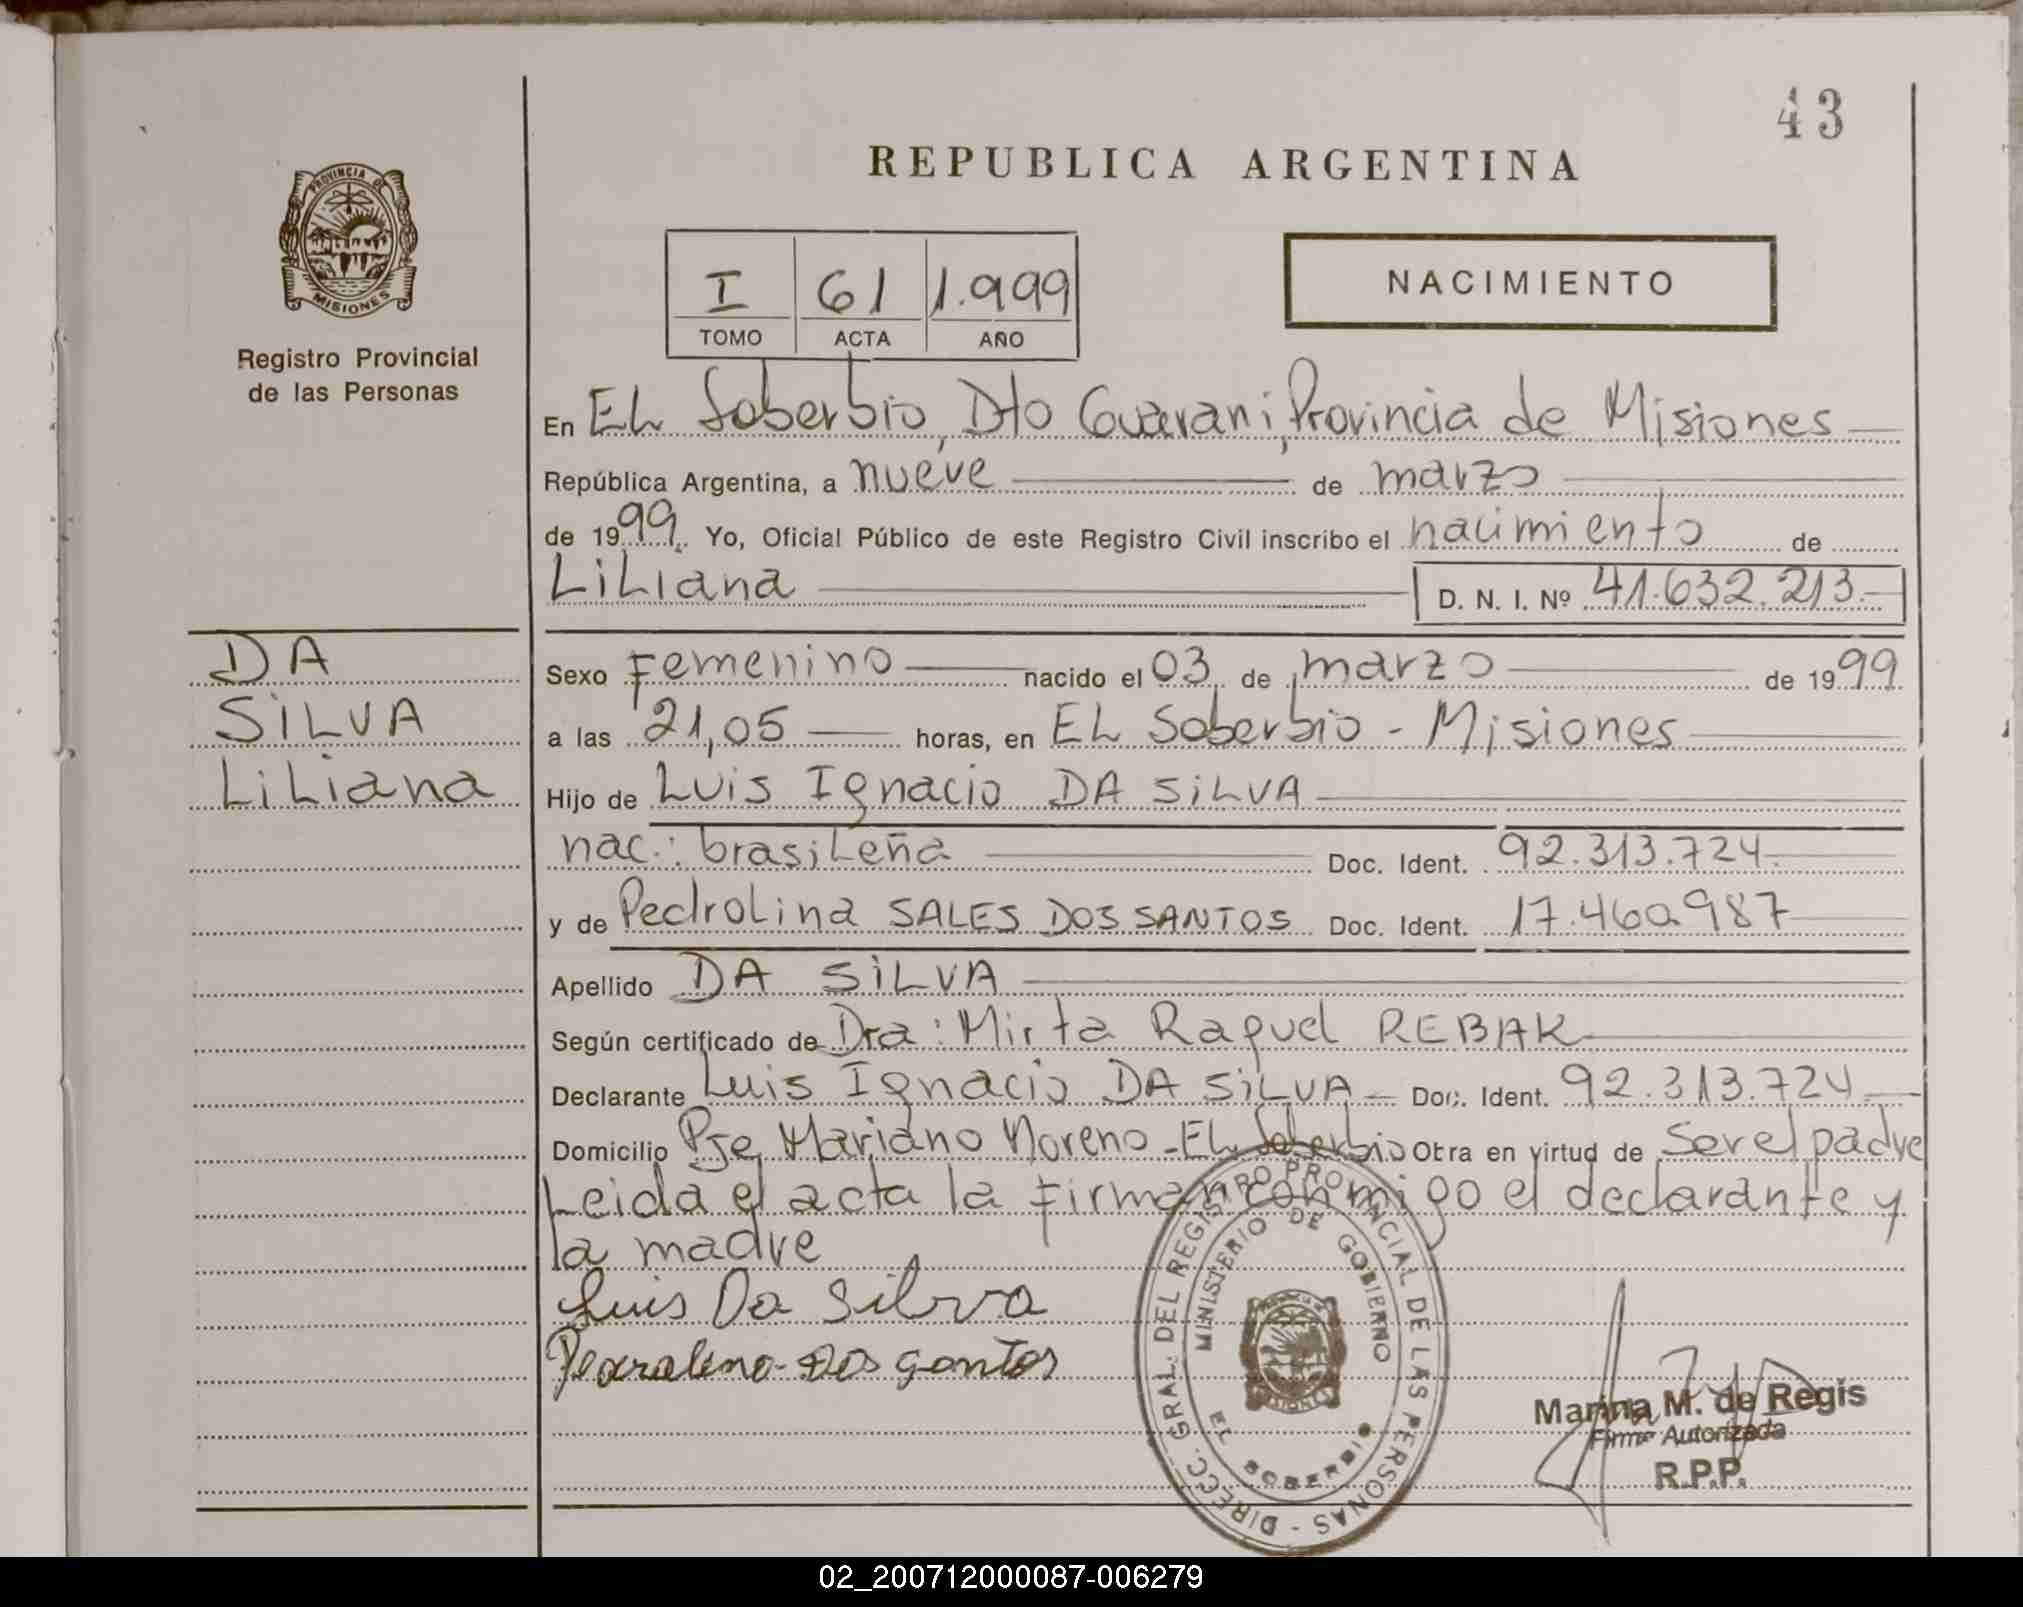 43
REPUBLICA ARGENTINA
PROVINCIA DE
MISIONES
Registro Provincial
de las Personas
I 61 1.999
TOMO ACTA AÑO
NACIMIENTO
En EL Soberbio, Dto Guarani, Provincia de Misiones
República Argentina, a nueve de marzo
de 1999. Yo, Oficial Público de este Registro Civil inscribo el nacimiento de
LiLiana D. N. I. Nº 41.632.213.-
DA
SiLVA
LiLiana
Sexo Femenino nacido el 03 de marzo de 1999
a las 21,05 horas, en EL Soberbio - Misiones
Hijo de Luis Ignacio DA SiLVA
nac.: brasileña Doc. Ident. 92.313.724.
y de Pedrolina SALES DOS SANTOS Doc. Ident. 17.460.987
Apellido DA SiLVA
Según certificado de Dra: Mirta Raquel REBAK
Declarante Luis Ignacio DA SiLVA Doc. Ident. 92.313.724
Domicilio Pje Mariano Moreno - EL Soberbio Obra en virtud de ser el padre
Leida el acta la firman conmigo el declarante y
la madre
Luis Da Silva
Dos Santos
DIRECC. GRAL. DEL REGISTRO PROVINCIAL DE LAS PERSONAS -
MINISTERIO DE GOBIERNO
EL SOBERBIO
Marina M. de Regis
Firma Autorizada
R.P.P.
02_200712000087-006279